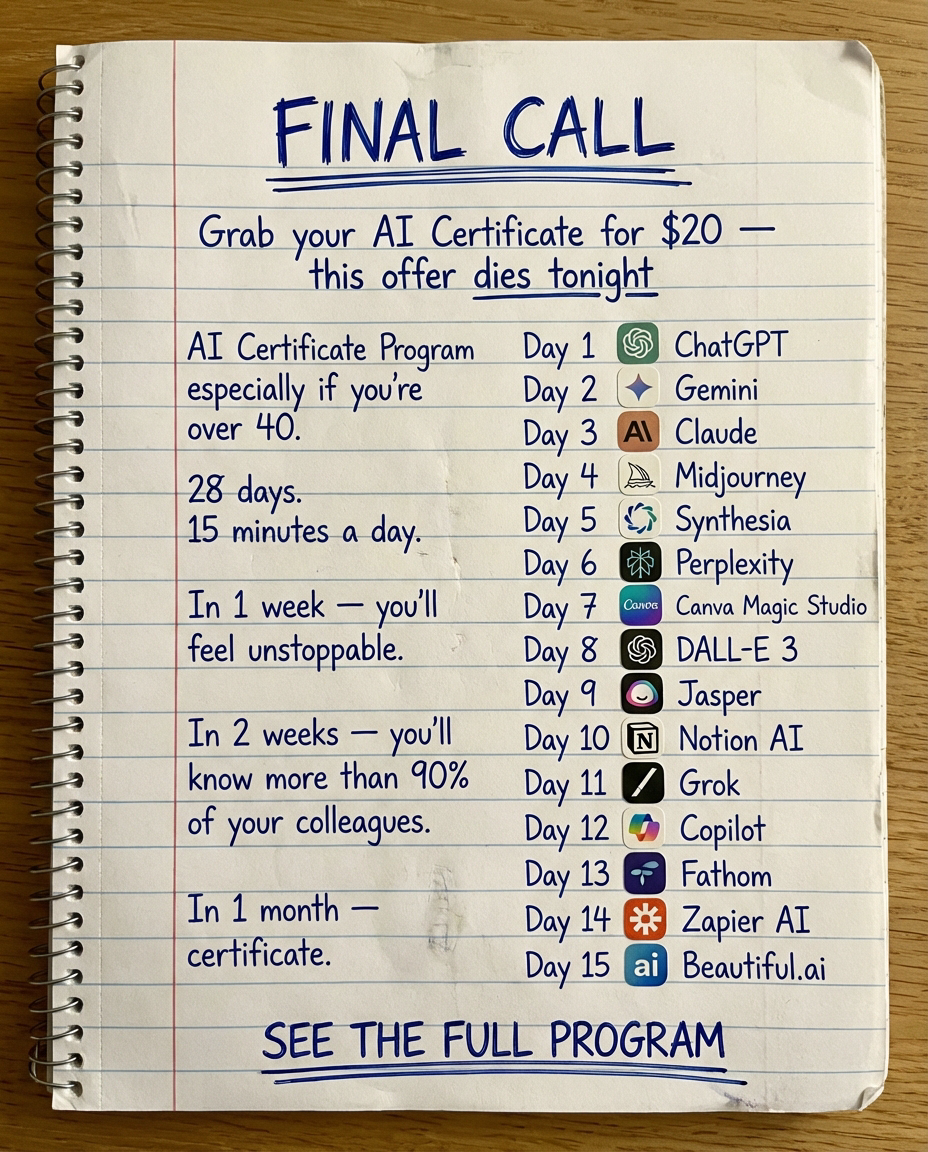 FINAL CALL
Grab your AI Certificate for $20 —
this offer dies tonight
AI Certificate Program
especially if you're
over 40.
28 days.
15 minutes a day.
In 1 week — you'll
feel unstoppable.
In 2 weeks — you'll
know more than 90%
of your colleagues.
In 1 month —
certificate.
Day 1 ChatGPT
Day 2 Gemini
Day 3 AI Claude
Day 4 Midjourney
Day 5 Synthesia
Day 6 Perplexity
Day 7 Canva Canva Magic Studio
Day 8 DALL-E 3
Day 9 Jasper
Day 10 N Notion AI
Day 11 Grok
Day 12 Copilot
Day 13 Fathom
Day 14 Zapier AI
Day 15 ai Beautiful.ai
SEE THE FULL PROGRAM